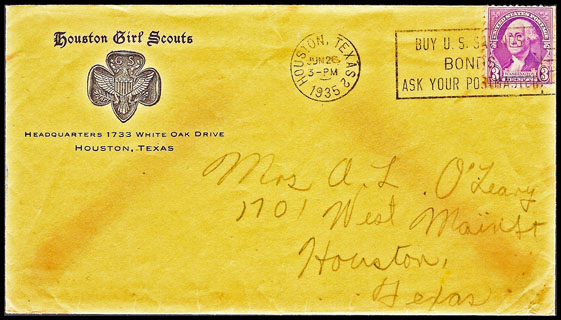 Houston Girl Scouts
GS
HEADQUARTERS 1733 WHITE OAK DRIVE
HOUSTON, TEXAS
HOUSTON, TEXAS 2
JUN 26
3-PM
1935
BUY U.S. SA
BON
ASK YOUR POSTMASTER
3 3
Mrs A. L. O'Leary
1701 West Main St
Houston,
Texas